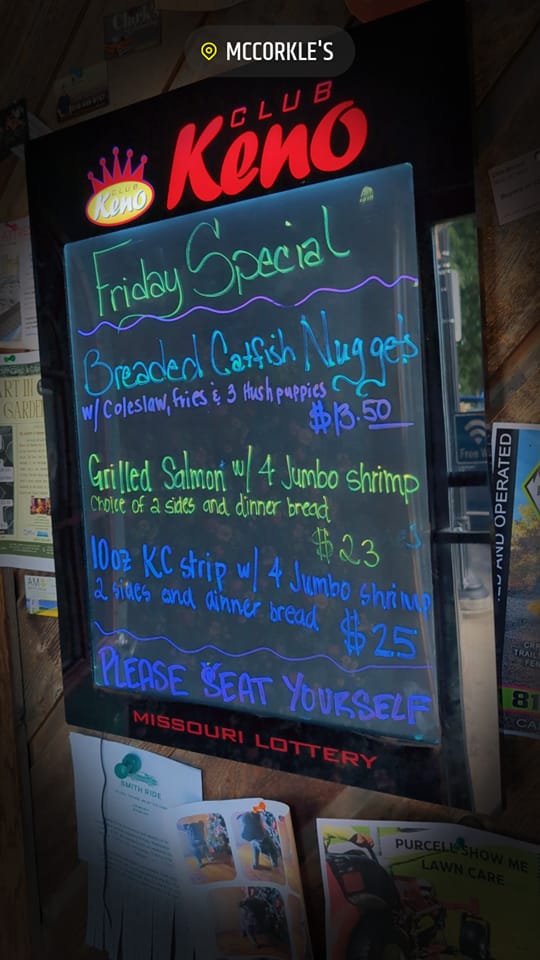 MCCORKLE'S
CLUB
Keno
CLUB
Keno
Friday Special
Breaded Catfish Nuggets
w/ Coleslaw, fries & 3 Hushpuppies
$13.50
Grilled Salmon w/ 4 Jumbo shrimp
Choice of 2 sides and dinner bread
$23
10oz KC strip w/ 4 Jumbo shrimp
2 sides and dinner bread $25
PLEASE SEAT YOURSELF
MISSOURI LOTTERY
SMITH RIDE
PURCELL SHOW ME
LAWN CARE
AND OPERATED
81